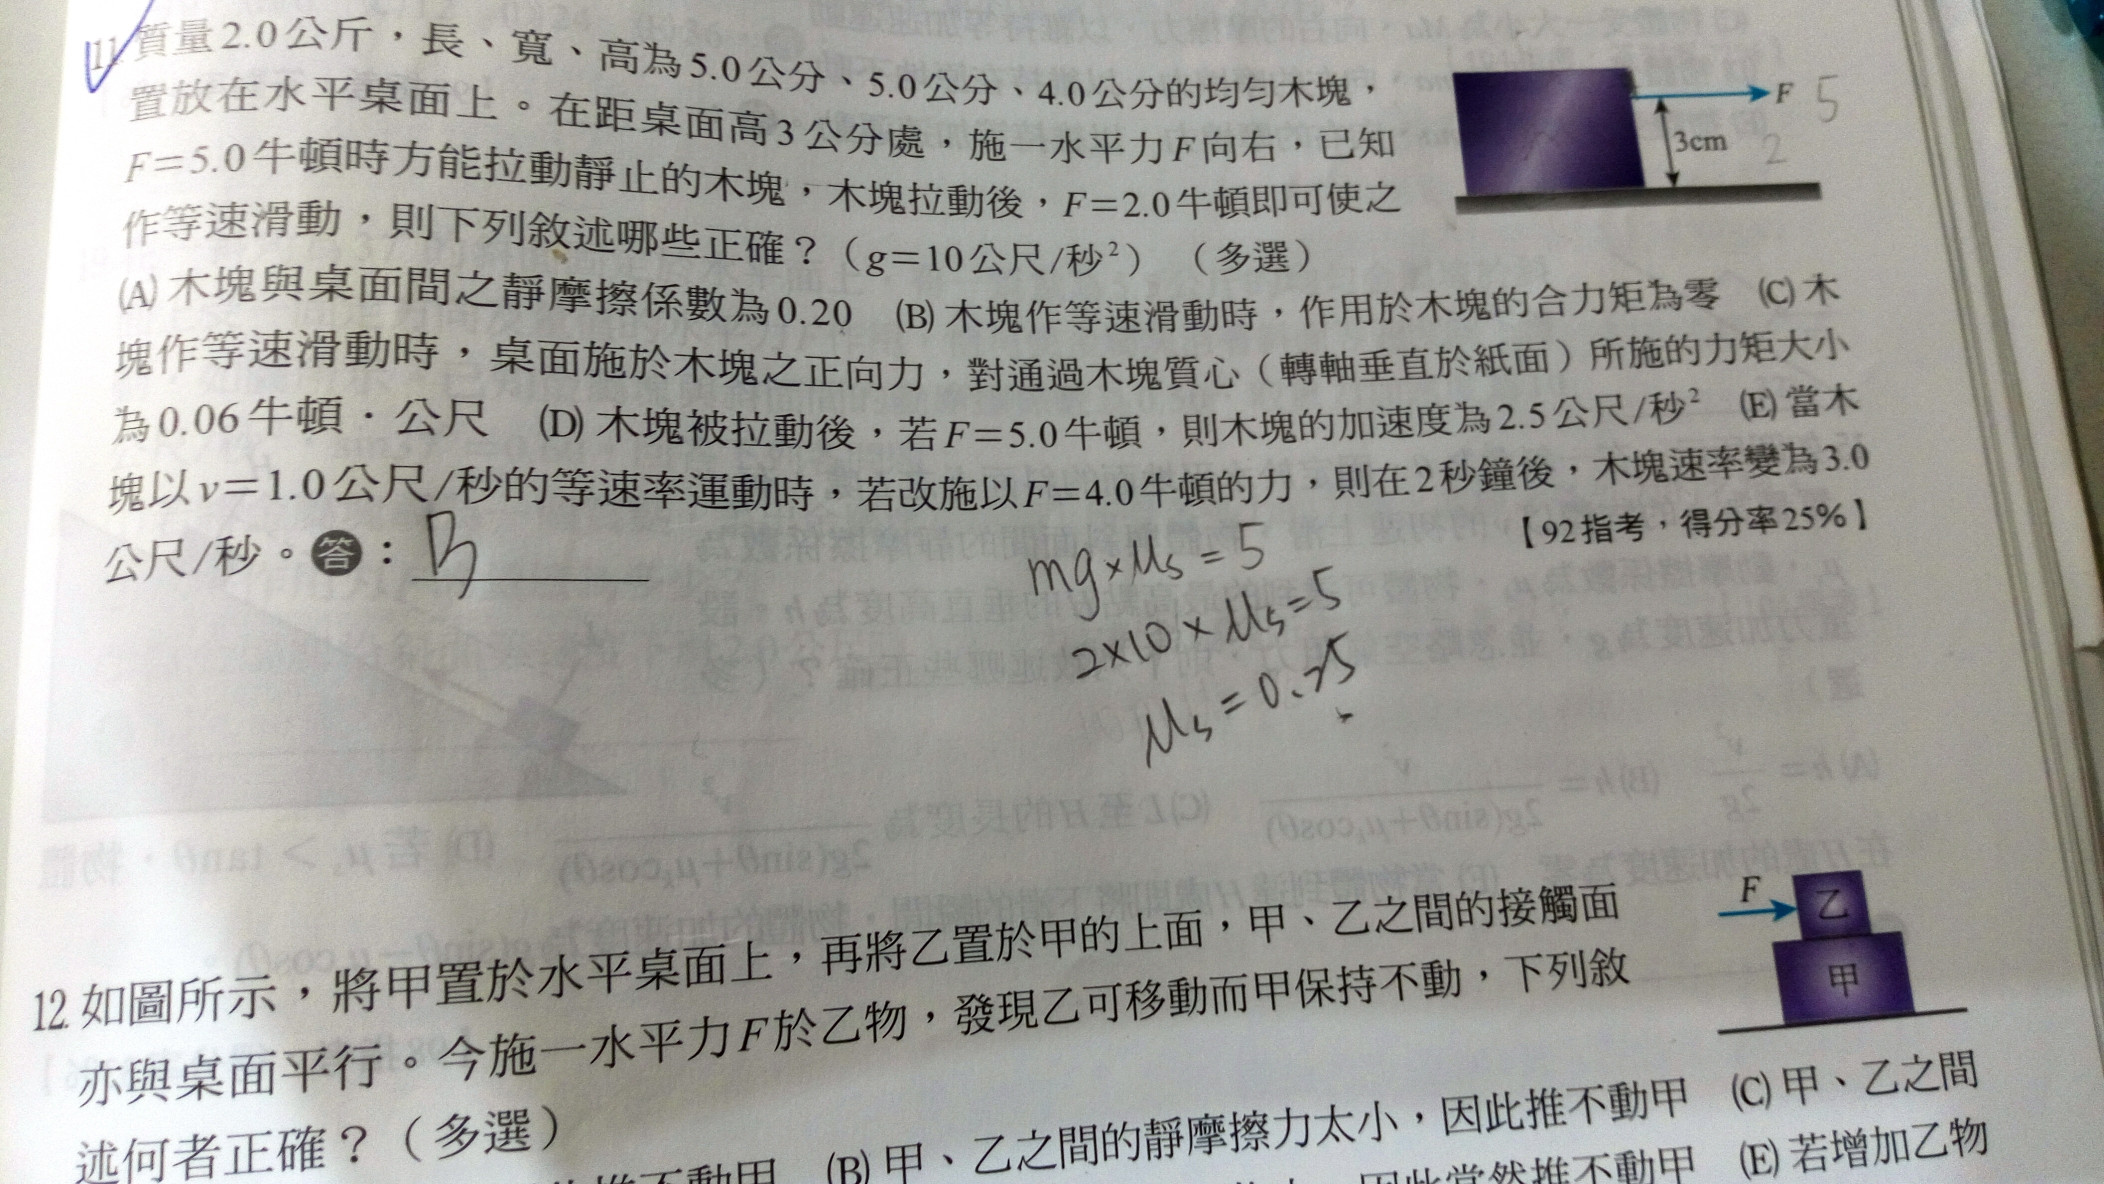 11. 質量2.0公斤，長、寬、高為5.0公分、5.0公分、4.0公分的均勻木塊，
置放在水平桌面上。在距桌面高3公分處，施一水平力F向右，已知
F=5.0牛頓時方能拉動靜止的木塊，木塊拉動後，F=2.0牛頓即可使之
作等速滑動，則下列敘述哪些正確？（g=10公尺/秒²）（多選）
F 5
3cm 2
(A) 木塊與桌面間之靜摩擦係數為0.20 (B) 木塊作等速滑動時，作用於木塊的合力矩為零 (C) 木
塊作等速滑動時，桌面施於木塊之正向力，對通過木塊質心（轉軸垂直於紙面）所施的力矩大小
為0.06牛頓．公尺 (D) 木塊被拉動後，若F=5.0牛頓，則木塊的加速度為2.5公尺/秒² (E) 當木
塊以v=1.0公尺/秒的等速率運動時，若改施以F=4.0牛頓的力，則在2秒鐘後，木塊速率變為3.0
公尺/秒。答：B
【92指考，得分率25%】
mg×μs=5
2×10×μs=5
μs=0.25
12. 如圖所示，將甲置於水平桌面上，再將乙置於甲的上面，甲、乙之間的接觸面
亦與桌面平行。今施一水平力F於乙物，發現乙可移動而甲保持不動，下列敘
述何者正確？（多選）
F
乙
甲
推不動甲 (B) 甲、乙之間的靜摩擦力太小，因此推不動甲 (C) 甲、乙之間
因此當然推不動甲 (E) 若增加乙物